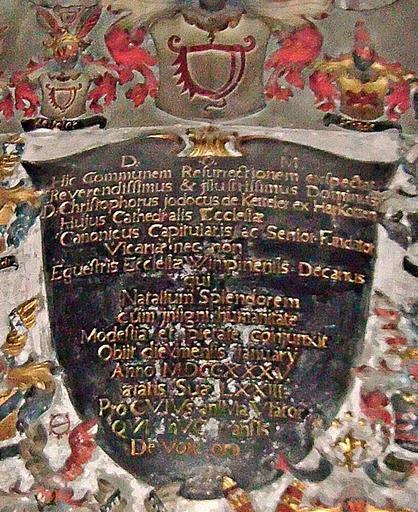 D. O. M
Hic Communem Resurrectionem exspectat
Reverendissimus & illustrissimus Dominus
D. Christophorus jodocus de Ketteler ex
Hujus Cathedralis Ecclesiæ
Canonicus Capitularis ac Senior Fundator
Vicariæ nec non
Equestris Ecclesiæ Wimpinensis Decanus
qui
Natalium Splendorem
cum insigni humanitate
Modestia et Pietate conjunxit
Obiit die January
Anno MDCCXXXV
ætatis Suæ LXXIII
Pro CVIVs anIMa Viator